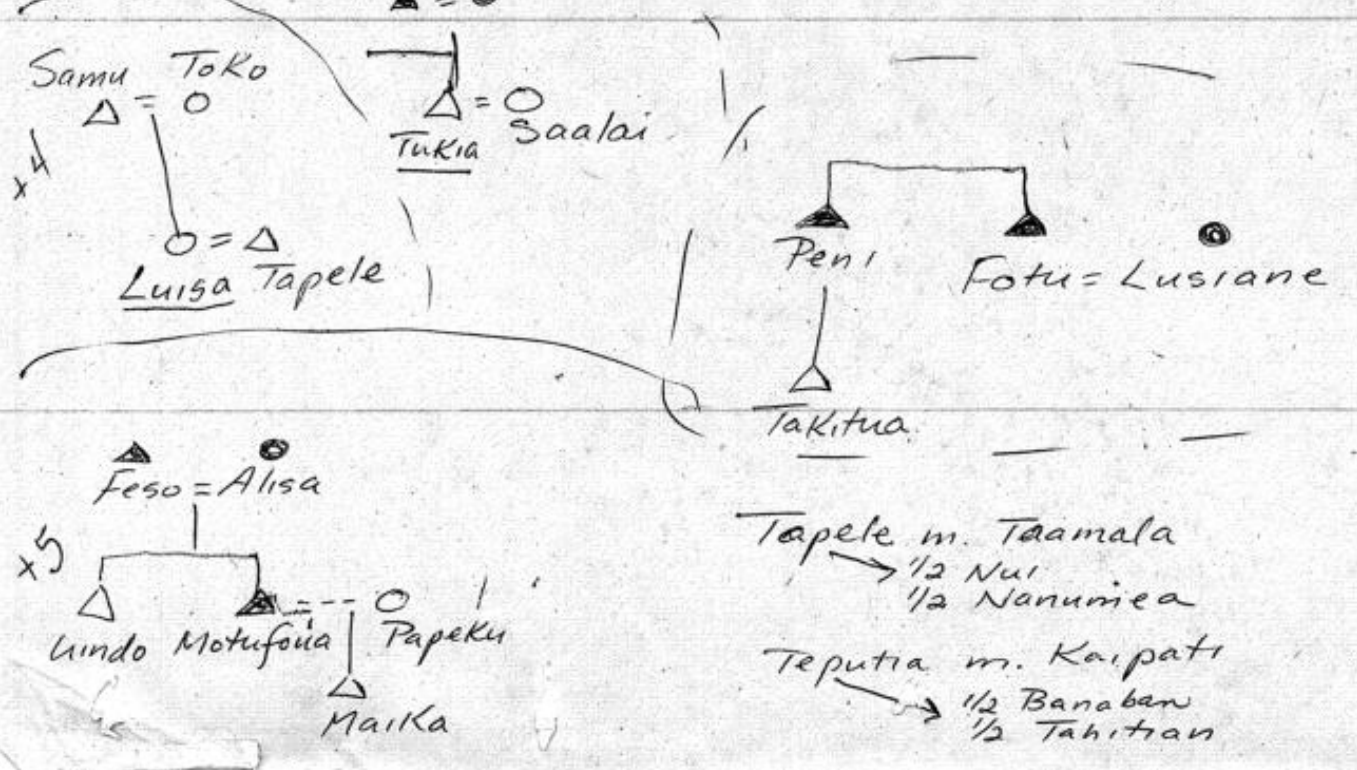 Samu Toko
x4
Luisa Tapele
Tukia Saalai
Peni
Fotu = Lusiane
Takitua
Feso = Alisa
x5
Uindo Motufoua Papeku
Maika
Tapele m. Taamala
1/2 Nui
1/2 Nanumea
Teputia m. Kaipati
1/2 Banaban
1/2 Tahitian